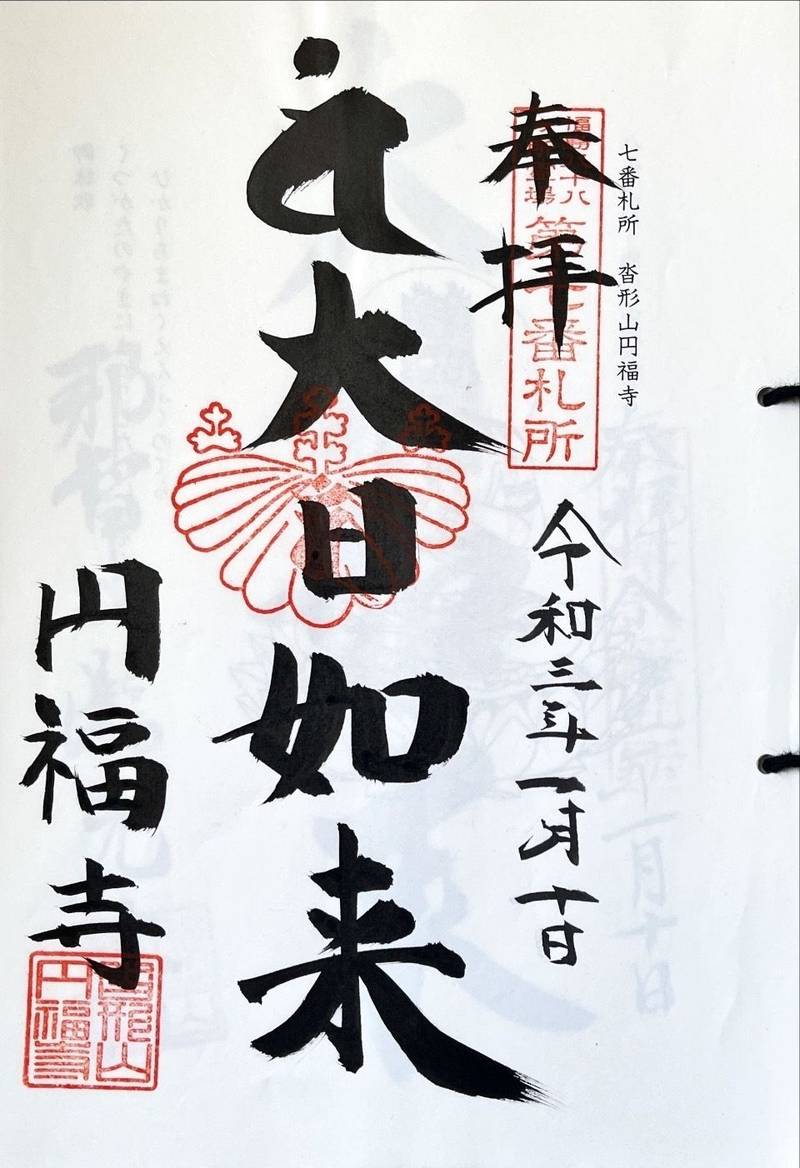 七番札所 沓形山円福寺
奉拝
第七番札所
令和三年一月十日
大日如来
円福寺
沓形山
円福寺